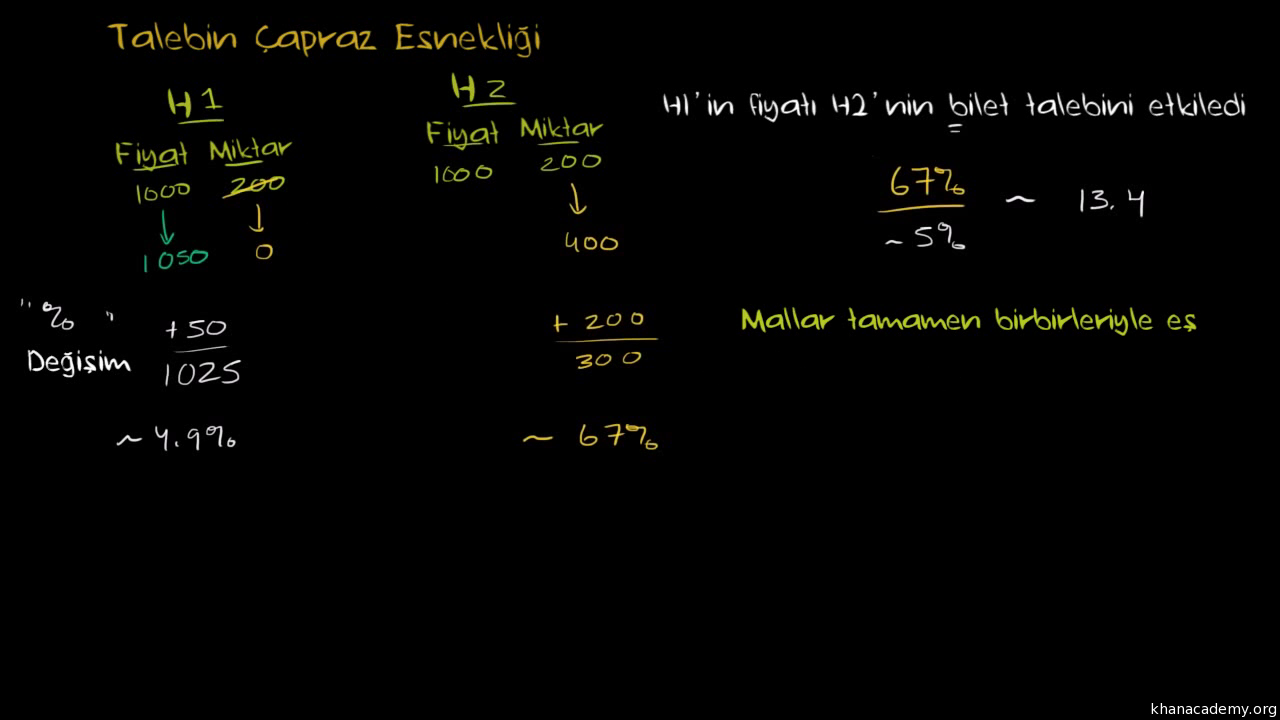 Talebin Çapraz Esnekliği
H1
Fiyat Miktar
1000 200
1050 0
H2
Fiyat Miktar
1000 200
400
H1'in fiyatı H2'nin bilet talebini etkiledi
67%
~ 5%
~ 13.4
"% "
Değişim
+50
1025
~ 4.9%
+ 200
300
~ 67%
Mallar tamamen birbirleriyle eş
khanacademy.org